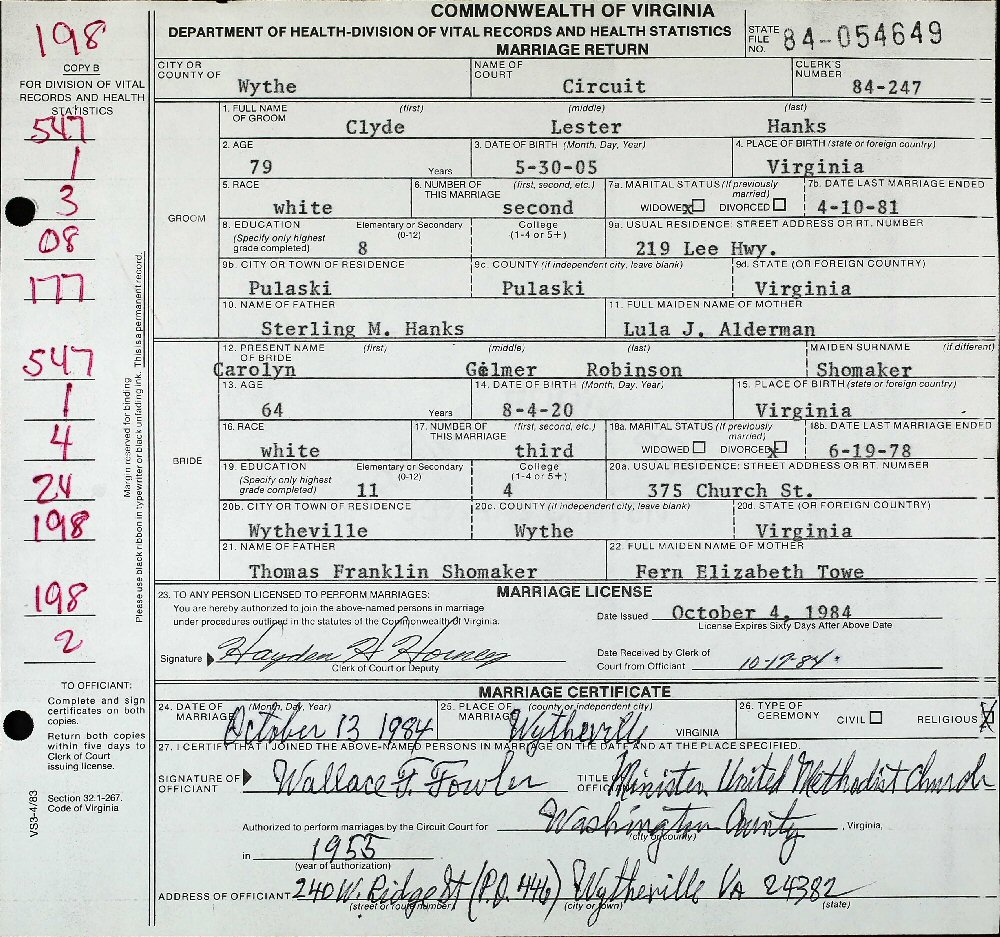 COMMONWEALTH OF VIRGINIA
DEPARTMENT OF HEALTH-DIVISION OF VITAL RECORDS AND HEALTH STATISTICS
MARRIAGE RETURN
STATE FILE NO. 84-054649
198
COPY B
FOR DIVISION OF VITAL
RECORDS AND HEALTH
STATISTICS
547
1
3
08
177
547
1
4
24
198
198
2
Margin reserved for binding
Please use black ribbon in typewriter or black unfading ink. This is a permanent record.
TO OFFICIANT:
Complete and sign
certificates on both
copies.
Return both copies
within five days to
Clerk of Court
issuing license.
Section 32.1-267.
Code of Virginia
VS3-4/83
CITY OR COUNTY OF Wythe
NAME OF COURT Circuit
CLERK'S NUMBER 84-247
GROOM
1. FULL NAME OF GROOM (first) (middle) (last)
Clyde Lester Hanks
2. AGE 79 Years
3. DATE OF BIRTH (Month, Day, Year) 5-30-05
4. PLACE OF BIRTH (state or foreign country) Virginia
5. RACE white
6. NUMBER OF THIS MARRIAGE (first, second, etc.) second
7a. MARITAL STATUS (If previously married) WIDOWED X DIVORCED
7b. DATE LAST MARRIAGE ENDED 4-10-81
8. EDUCATION (Specify only highest grade completed) Elementary or Secondary (0-12) 8 College (1-4 or 5+)
9a. USUAL RESIDENCE: STREET ADDRESS OR RT. NUMBER 219 Lee Hwy.
9b. CITY OR TOWN OF RESIDENCE Pulaski
9c. COUNTY (if independent city, leave blank) Pulaski
9d. STATE (OR FOREIGN COUNTRY) Virginia
10. NAME OF FATHER Sterling M. Hanks
11. FULL MAIDEN NAME OF MOTHER Lula J. Alderman
BRIDE
12. PRESENT NAME OF BRIDE (first) (middle) (last) MAIDEN SURNAME (if different)
Carolyn Gilmer Robinson Shomaker
13. AGE 64 Years
14. DATE OF BIRTH (Month, Day, Year) 8-4-20
15. PLACE OF BIRTH (state or foreign country) Virginia
16. RACE white
17. NUMBER OF THIS MARRIAGE (first, second, etc.) third
18a. MARITAL STATUS (If previously married) WIDOWED DIVORCED X
18b. DATE LAST MARRIAGE ENDED 6-19-78
19. EDUCATION (Specify only highest grade completed) Elementary or Secondary (0-12) 11 College (1-4 or 5+) 4
20a. USUAL RESIDENCE: STREET ADDRESS OR RT. NUMBER 375 Church St.
20b. CITY OR TOWN OF RESIDENCE Wytheville
20c. COUNTY (if independent city, leave blank) Wythe
20d. STATE (OR FOREIGN COUNTRY) Virginia
21. NAME OF FATHER Thomas Franklin Shomaker
22. FULL MAIDEN NAME OF MOTHER Fern Elizabeth Towe
23. TO ANY PERSON LICENSED TO PERFORM MARRIAGES: MARRIAGE LICENSE
You are hereby authorized to join the above-named persons in marriage
under procedures outlined in the statutes of the Commonwealth of Virginia.
Date Issued October 4, 1984
License Expires Sixty Days After Above Date
Signature Hayden H Horney
Clerk of Court or Deputy
Date Received by Clerk of
Court from Officiant 10-17-84
MARRIAGE CERTIFICATE
24. DATE OF MARRIAGE (Month, Day, Year) October 13 1984
25. PLACE OF MARRIAGE (county or independent city) Wytheville VIRGINIA
26. TYPE OF CEREMONY CIVIL RELIGIOUS X
27. I CERTIFY THAT I JOINED THE ABOVE-NAMED PERSONS IN MARRIAGE ON THE DATE AND AT THE PLACE SPECIFIED.
SIGNATURE OF OFFICIANT Wallace F. Fowler
TITLE OF OFFICIANT Minister United Methodist Church
Authorized to perform marriages by the Circuit Court for Washington County, Virginia,
(city or county)
in 1955
(year of authorization)
ADDRESS OF OFFICIANT 240 W. Ridge St (P.O. 446) Wytheville VA 24382
(street or route number) (city or town) (state)